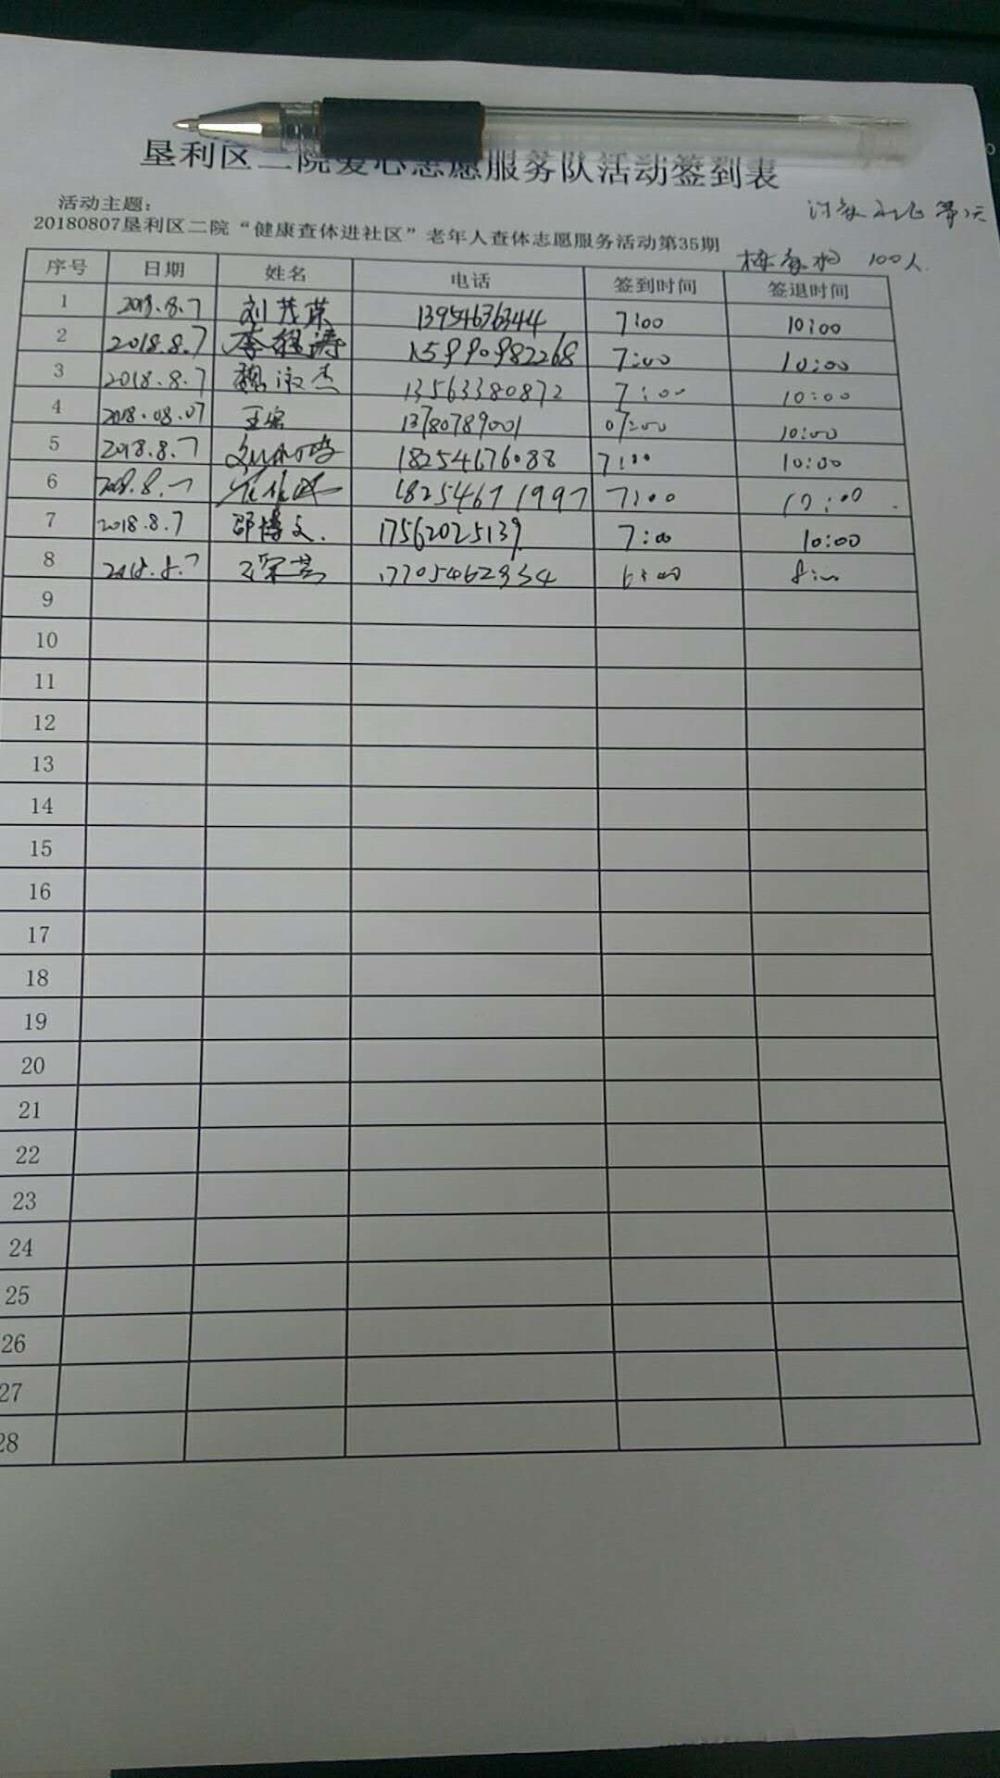 垦利区二院爱心志愿服务队活动签到表
活动主题：
20180807垦利区二院“健康查体进社区”老年人查体志愿服务活动第35期
100人
序号 日期 姓名 电话 签到时间 签退时间
1 2018.8.7 刘茂荣 13954636344 7:00 10:00
2 2018.8.7 李 涛 15990982268 7:00 10:00
3 2018.8.7 魏淑杰 13563380872 7:00 10:00
4 2018.08.07 13780789001 07:00 10:00
5 2018.8.7 18254676088 7:00 10:00
6 2018.8.7 18254671997 7:00 10:00
7 2018.8.7 邵博文. 17562025139 7:00 10:00
8 2018.8.7 17705462334 6:00 8:00
9
10
11
12
13
14
15
16
17
18
19
20
21
22
23
24
25
26
27
28